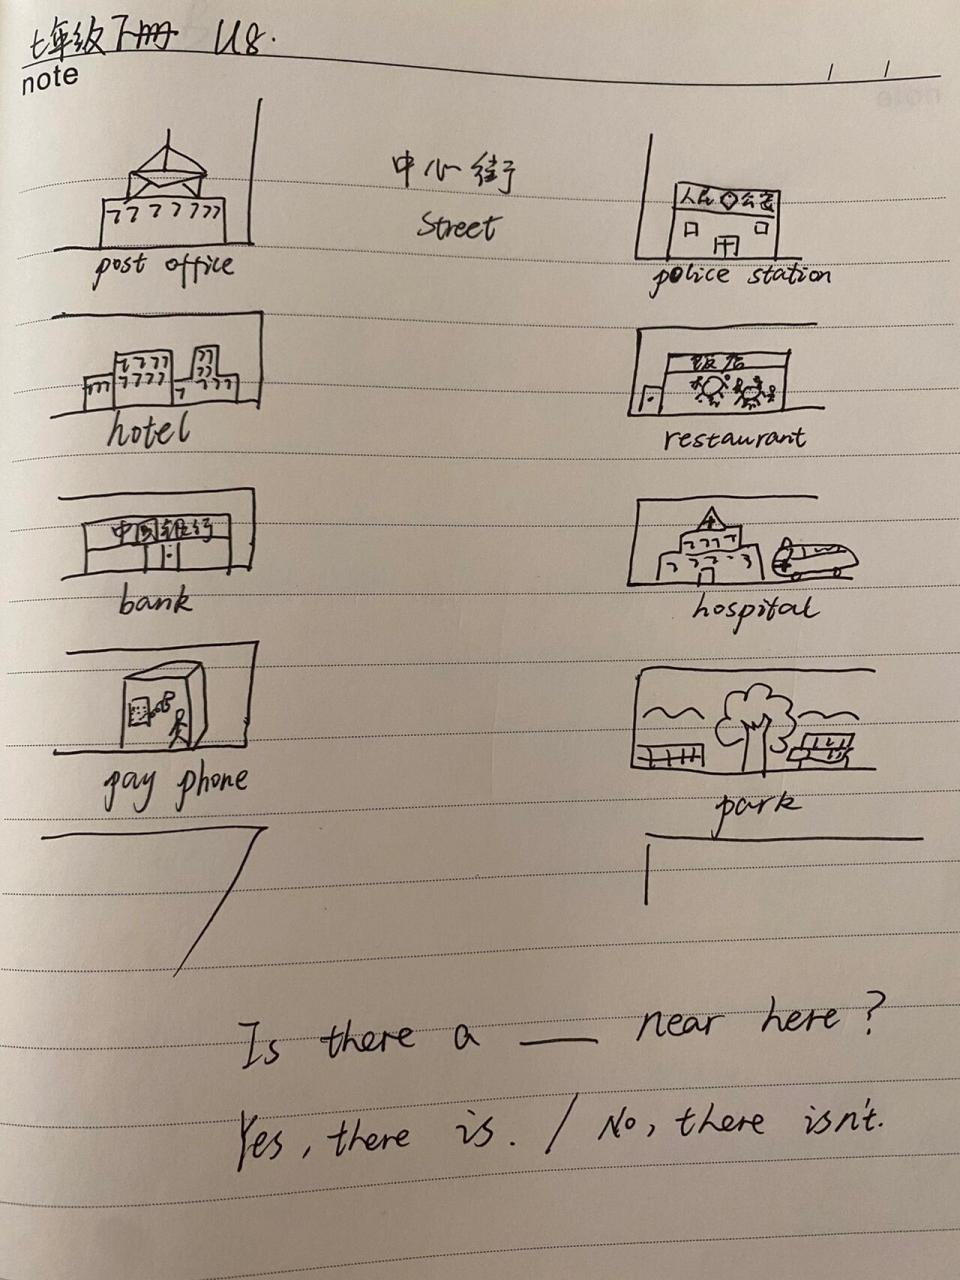 七年级下册 U8.
note
中心街
Street
人民公安
post office
police station
饭店
hotel
restaurant
中国银行
bank
hospital
pay phone
park
Is there a ___ near here?
Yes, there is. / No, there isn't.